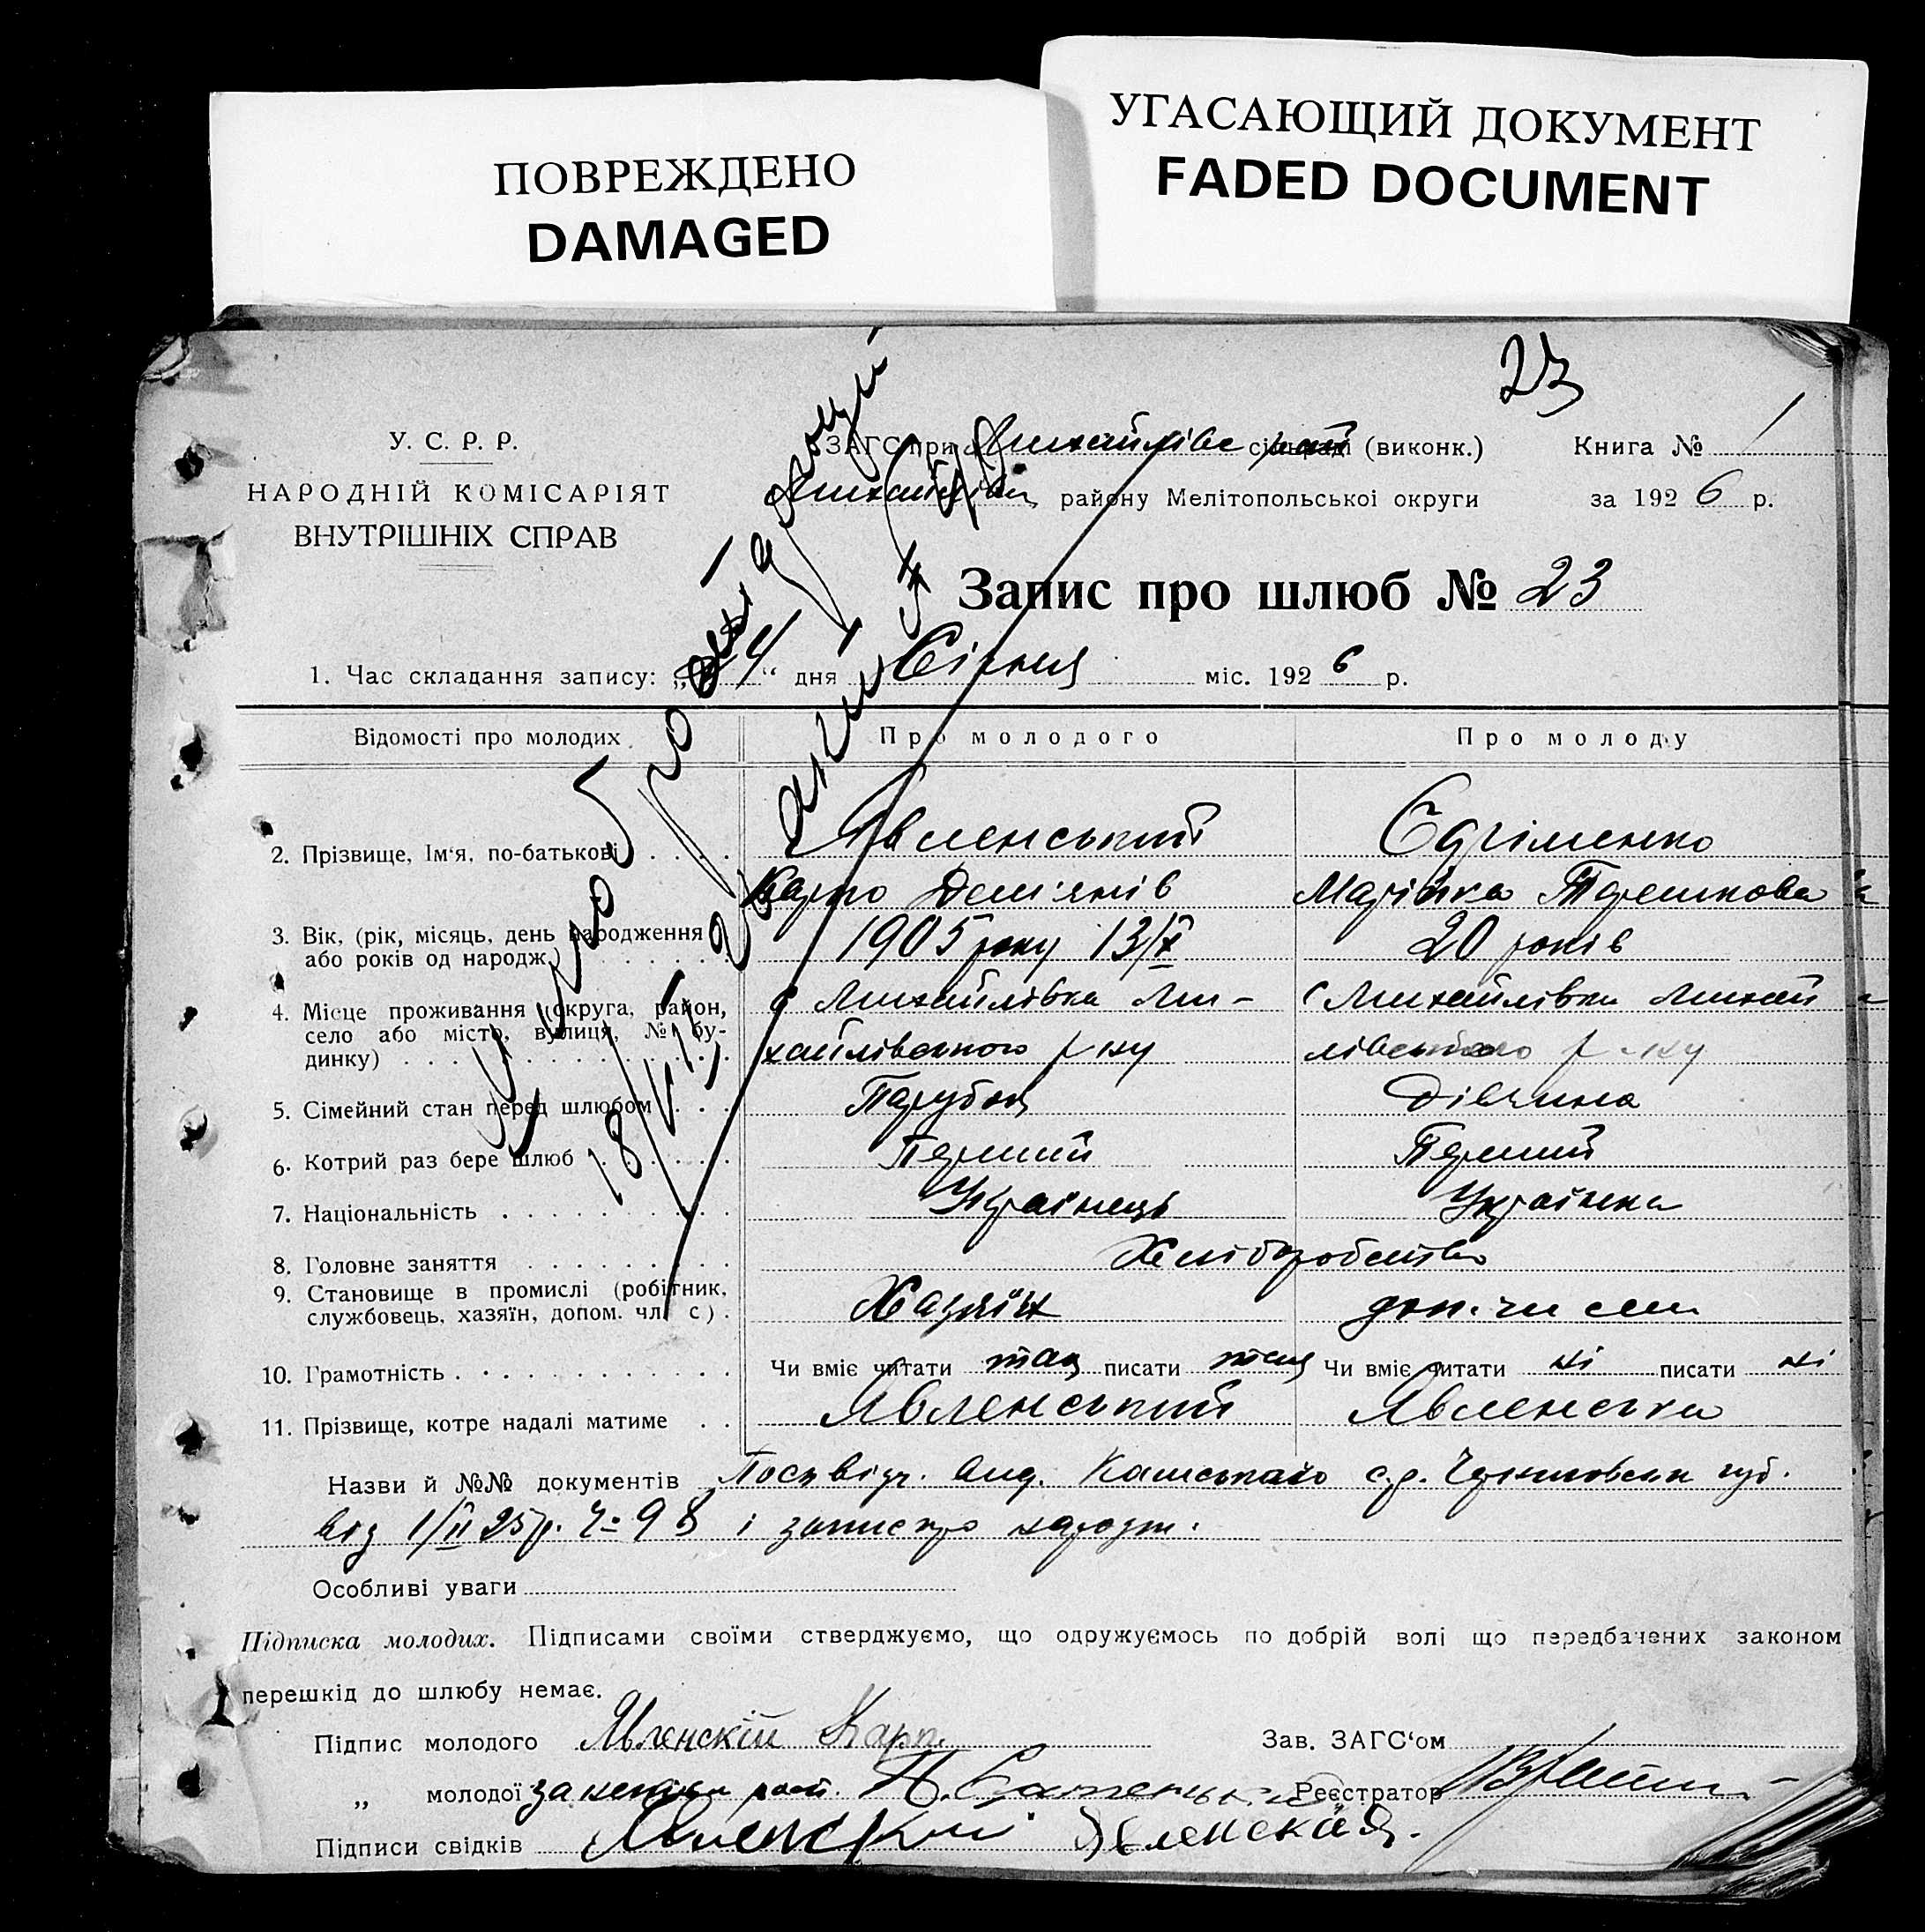 ПОВРЕЖДЕНО
DAMAGED
УГАСАЮЩИЙ ДОКУМЕНТ
FADED DOCUMENT
23
У. С. Р. Р.
НАРОДНІЙ КОМІСАРІЯТ
ВНУТРІШНІХ СПРАВ
ЗАГС при Михайлівс сільраді (виконк.)
району Мелітопольської округи
Книга № 1
за 1926 р.
Запис про шлюб № 23
1. Час складання запису: „ 4 “ дня Січня міс. 1926 р.
Відомості про молодих Про молодого Про молоду
2. Прізвище, Ім'я, по-батькові Явленський
Карпо Дем'янів
Марійка
3. Вік, (рік, місяць, день народження
або років од народж.) 1905 року 13/X 20 років
4. Місце проживання (округа, район, с Михайлівка Ми- с Михайлівки Михай
село або місто, вулиця, № бу-
динку) хайлівського р ну лівського р-ну
5. Сімейний стан перед шлюбом Парубок Дівчина
6. Котрий раз бере шлюб Перший Перший
7. Національність Українець Українка
8. Головне заняття Хліборобство
9. Становище в промислі (робітник,
службовець, хазяїн, допом. чл. с). Хазяїн доп. чл сем
10. Грамотність Чи вміє читати так писати так Чи вміє читати ні писати ні
11. Прізвище, котре надалі матиме Явленський Явленська
Назви й №№ документів Посвідч. вид. с.р. губ.
від 1/II 25 р. Ч= 98 і запис про народж.
Особливі уваги
Підписка молодих. Підписами своїми стверджуємо, що одружуємось по добрій волі що передбачених законом
перешкід до шлюбу немає.
Підпис молодого Явленскій Карп. Зав. ЗАГС'ом
„ молодої за Реєстратор
Підписи свідків Явленскій Явленская.
18/VI